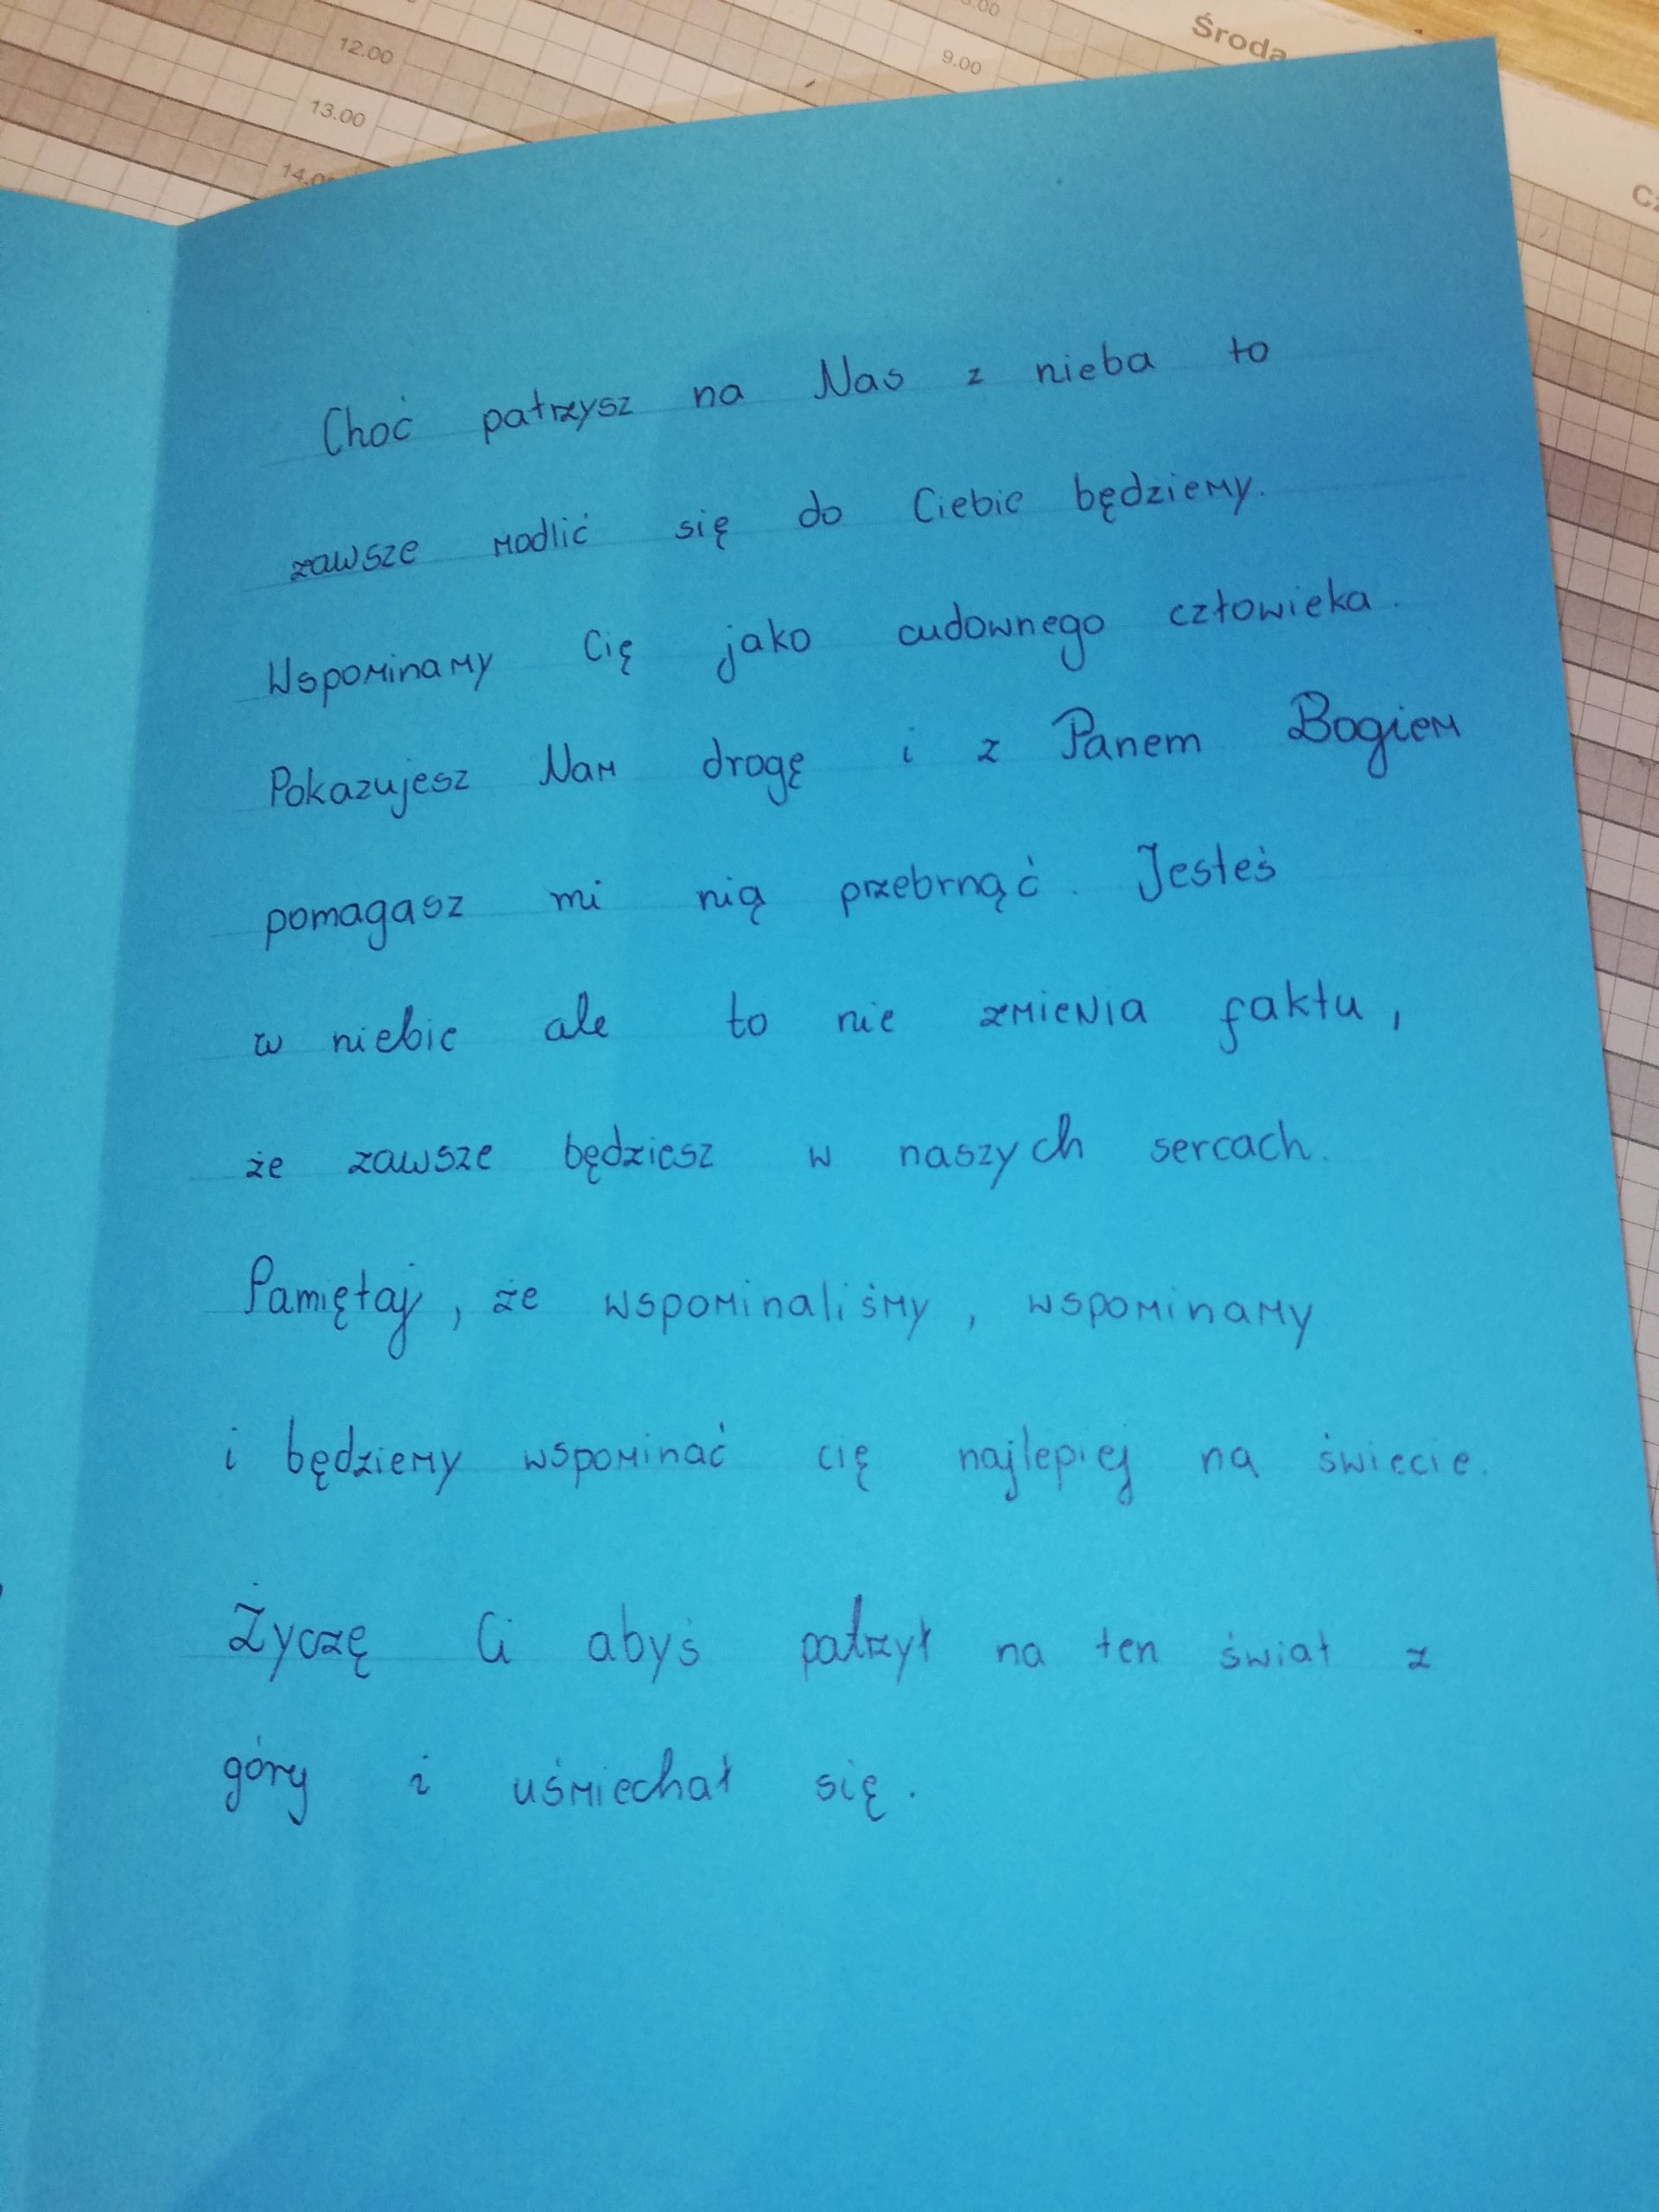 8.00
12.00
9.00
Środa
13.00
14.00
Choć patrzysz na Nas z nieba to
zawsze modlić się do Ciebie będziemy.
Wspominamy Cię jako cudownego człowieka.
Pokazujesz Nam drogę i z Panem Bogiem
pomagasz mi nią przebrnąć. Jesteś
w niebie ale to nie zmienia faktu,
że zawsze będziesz w naszych sercach.
Pamiętaj, że wspominaliśmy, wspominamy
i będziemy wspominać cię najlepiej na świecie.
Życzę Ci abyś patrzył na ten świat z
góry i uśmiechał się.